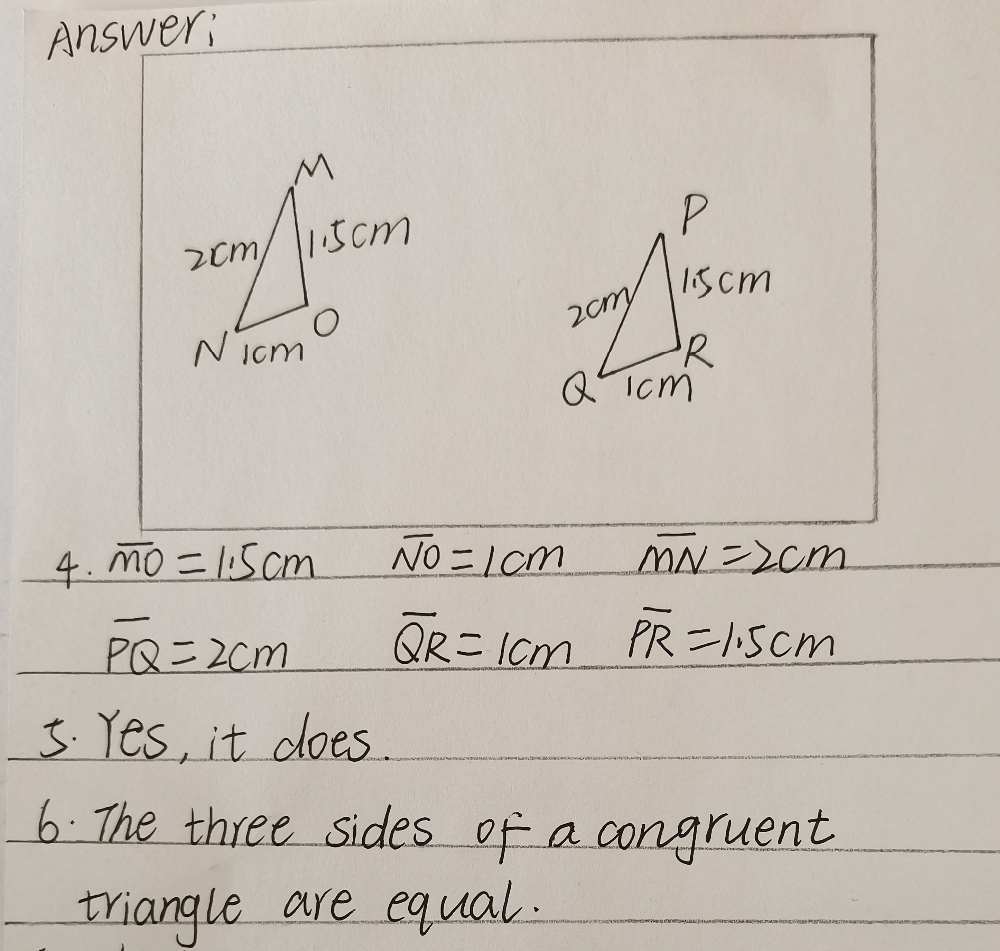 Answer:
M
2cm 1.5cm
P
2cm 1.5cm
N 1cm O
R
Q 1cm
4. M̅O̅ = 1.5cm N̅O̅ = 1cm M̅N̅ = 2cm
P̅Q̅ = 2cm Q̅R̅ = 1cm P̅R̅ = 1.5cm
5. Yes, it does.
6. The three sides of a congruent
triangle are equal.